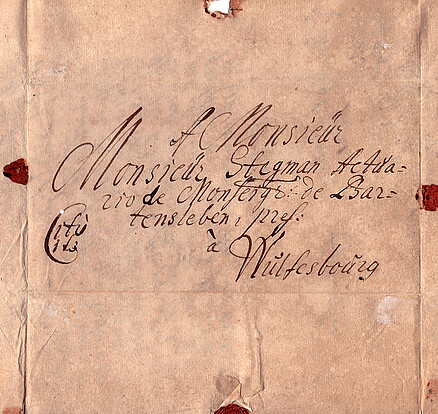 A Monsieür
Monsieür Stegman Actüa=
rio de Monseigr: de Bar=
tensleben, pres:
Citò
cito
à Wülfesboürg